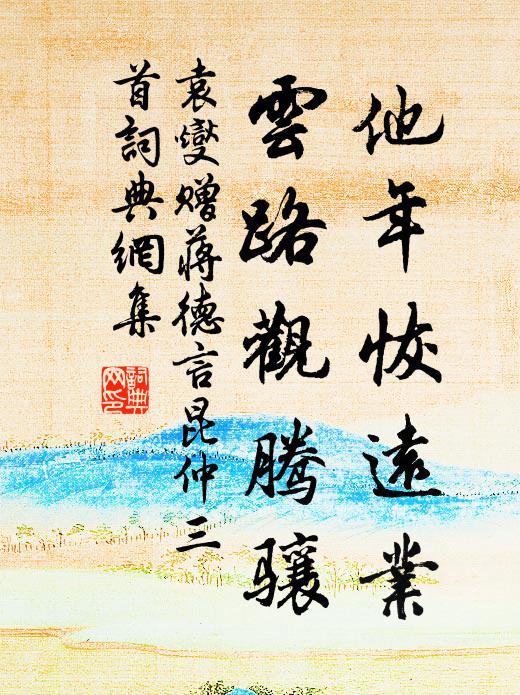 他年恢遠業
雲路觀騰驤
袁燮贈蔣德言昆仲三
首詞典網集
詞典網印